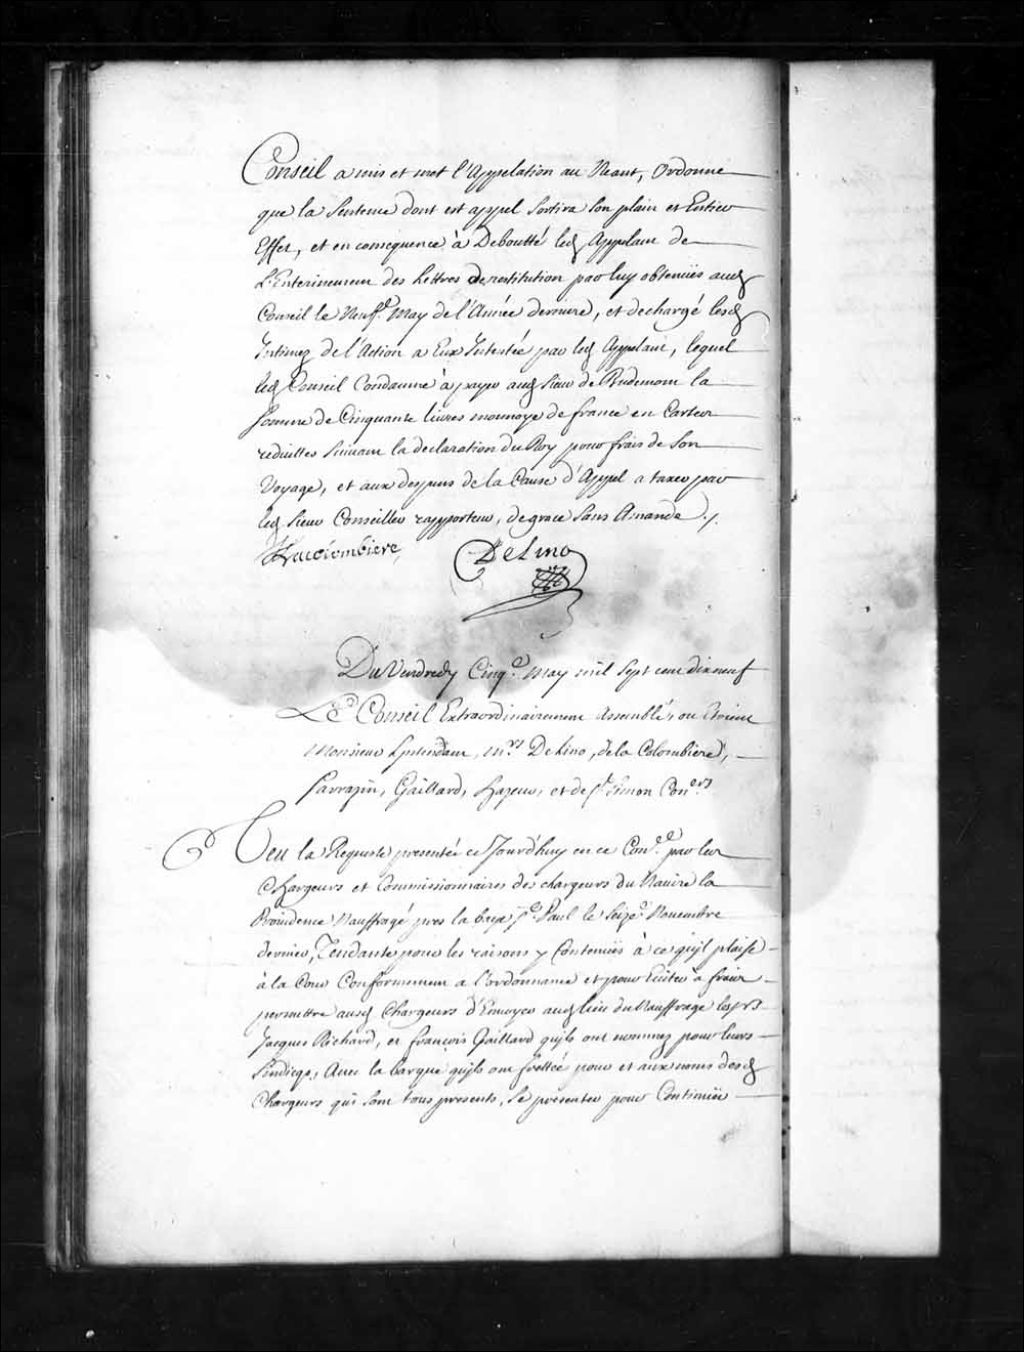 Conseil a mis et met l'Appelation au Neant, Ordonne
que la Sentence dont est appel Sortira Son plain et Entier
Effet, et en consequence à Deboutté led Appelant de
L'Enterinement des Lettres de restitution par luy obtenües aud
Conseil le Neufe. May de l'Année derniere, et dechargé lesd
Intimez de l'Action a Eux Intentée par led Appelant, lequel
led Conseil Condamne à payer aud Sieur de Rudemont la
Somme de Cinquante livres monnoye de france en Cartes
reduittes Suivant la declaration du Roy pour frais de Son
Voyage, et aux despens de la Cause d'Appel a taxer par
led Sieur Conseiller rapporteur, de grace Sans Amande ./.
Lacolombiere, DeLino
Du Vendredy Cinqe. May mil Sept cent dixneuf
Le Conseil Extraordinairement Assemblé, ou Etoient
Monsieur Lyntendant, Mrs DeLino, de la Colombiere,
Sarrazin, Gaillard, hazeur, et de St. Simon Coners
Veu la Requeste presentée ce Jourd'huy en ce Cone. par les
Chargeurs et Commissionnaires des chargeurs du Navire la
Providence Nauffragé pres la baye St. Paul le Seize. Novembre
dernier, Tendante pour les raisons y Contenües à ce qu'jl plaise
à la Cour Conformement a l'ordonnance et pour Eviter a fraix
permettre ausd Chargeurs d'Envoyer aud lieu du Nauffrage les srs
Jacques Richard, et françois Gaillard qu'jls ont nommez pour leurs
Sindics, Avec la barque qu'jls ont frettée pour et aux noms desd
Chargeurs qui Sont tous presents, Se presenter pour Continüer